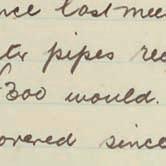 nce last mee
ter pipes rec
£300 would.
overed since